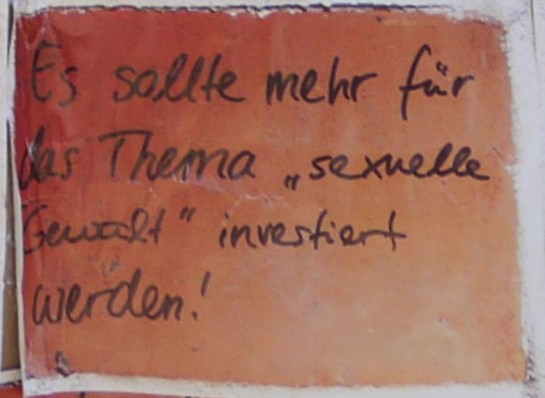 Es sollte mehr für
das Thema „sexuelle
Gewalt" investiert
werden!